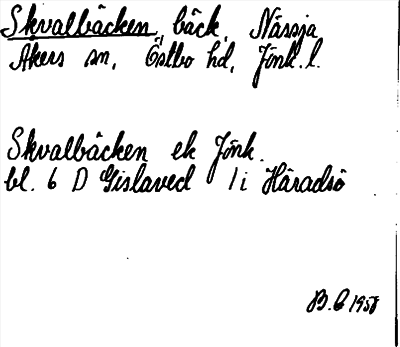 Skvalbäcken, bäck, Nässja
Åkers sn, Östbo hd, Jönk. l.
Skvalbäcken ek Jönk.
bl. 6 D Gislaved 1 i Häradsö
B. 1958